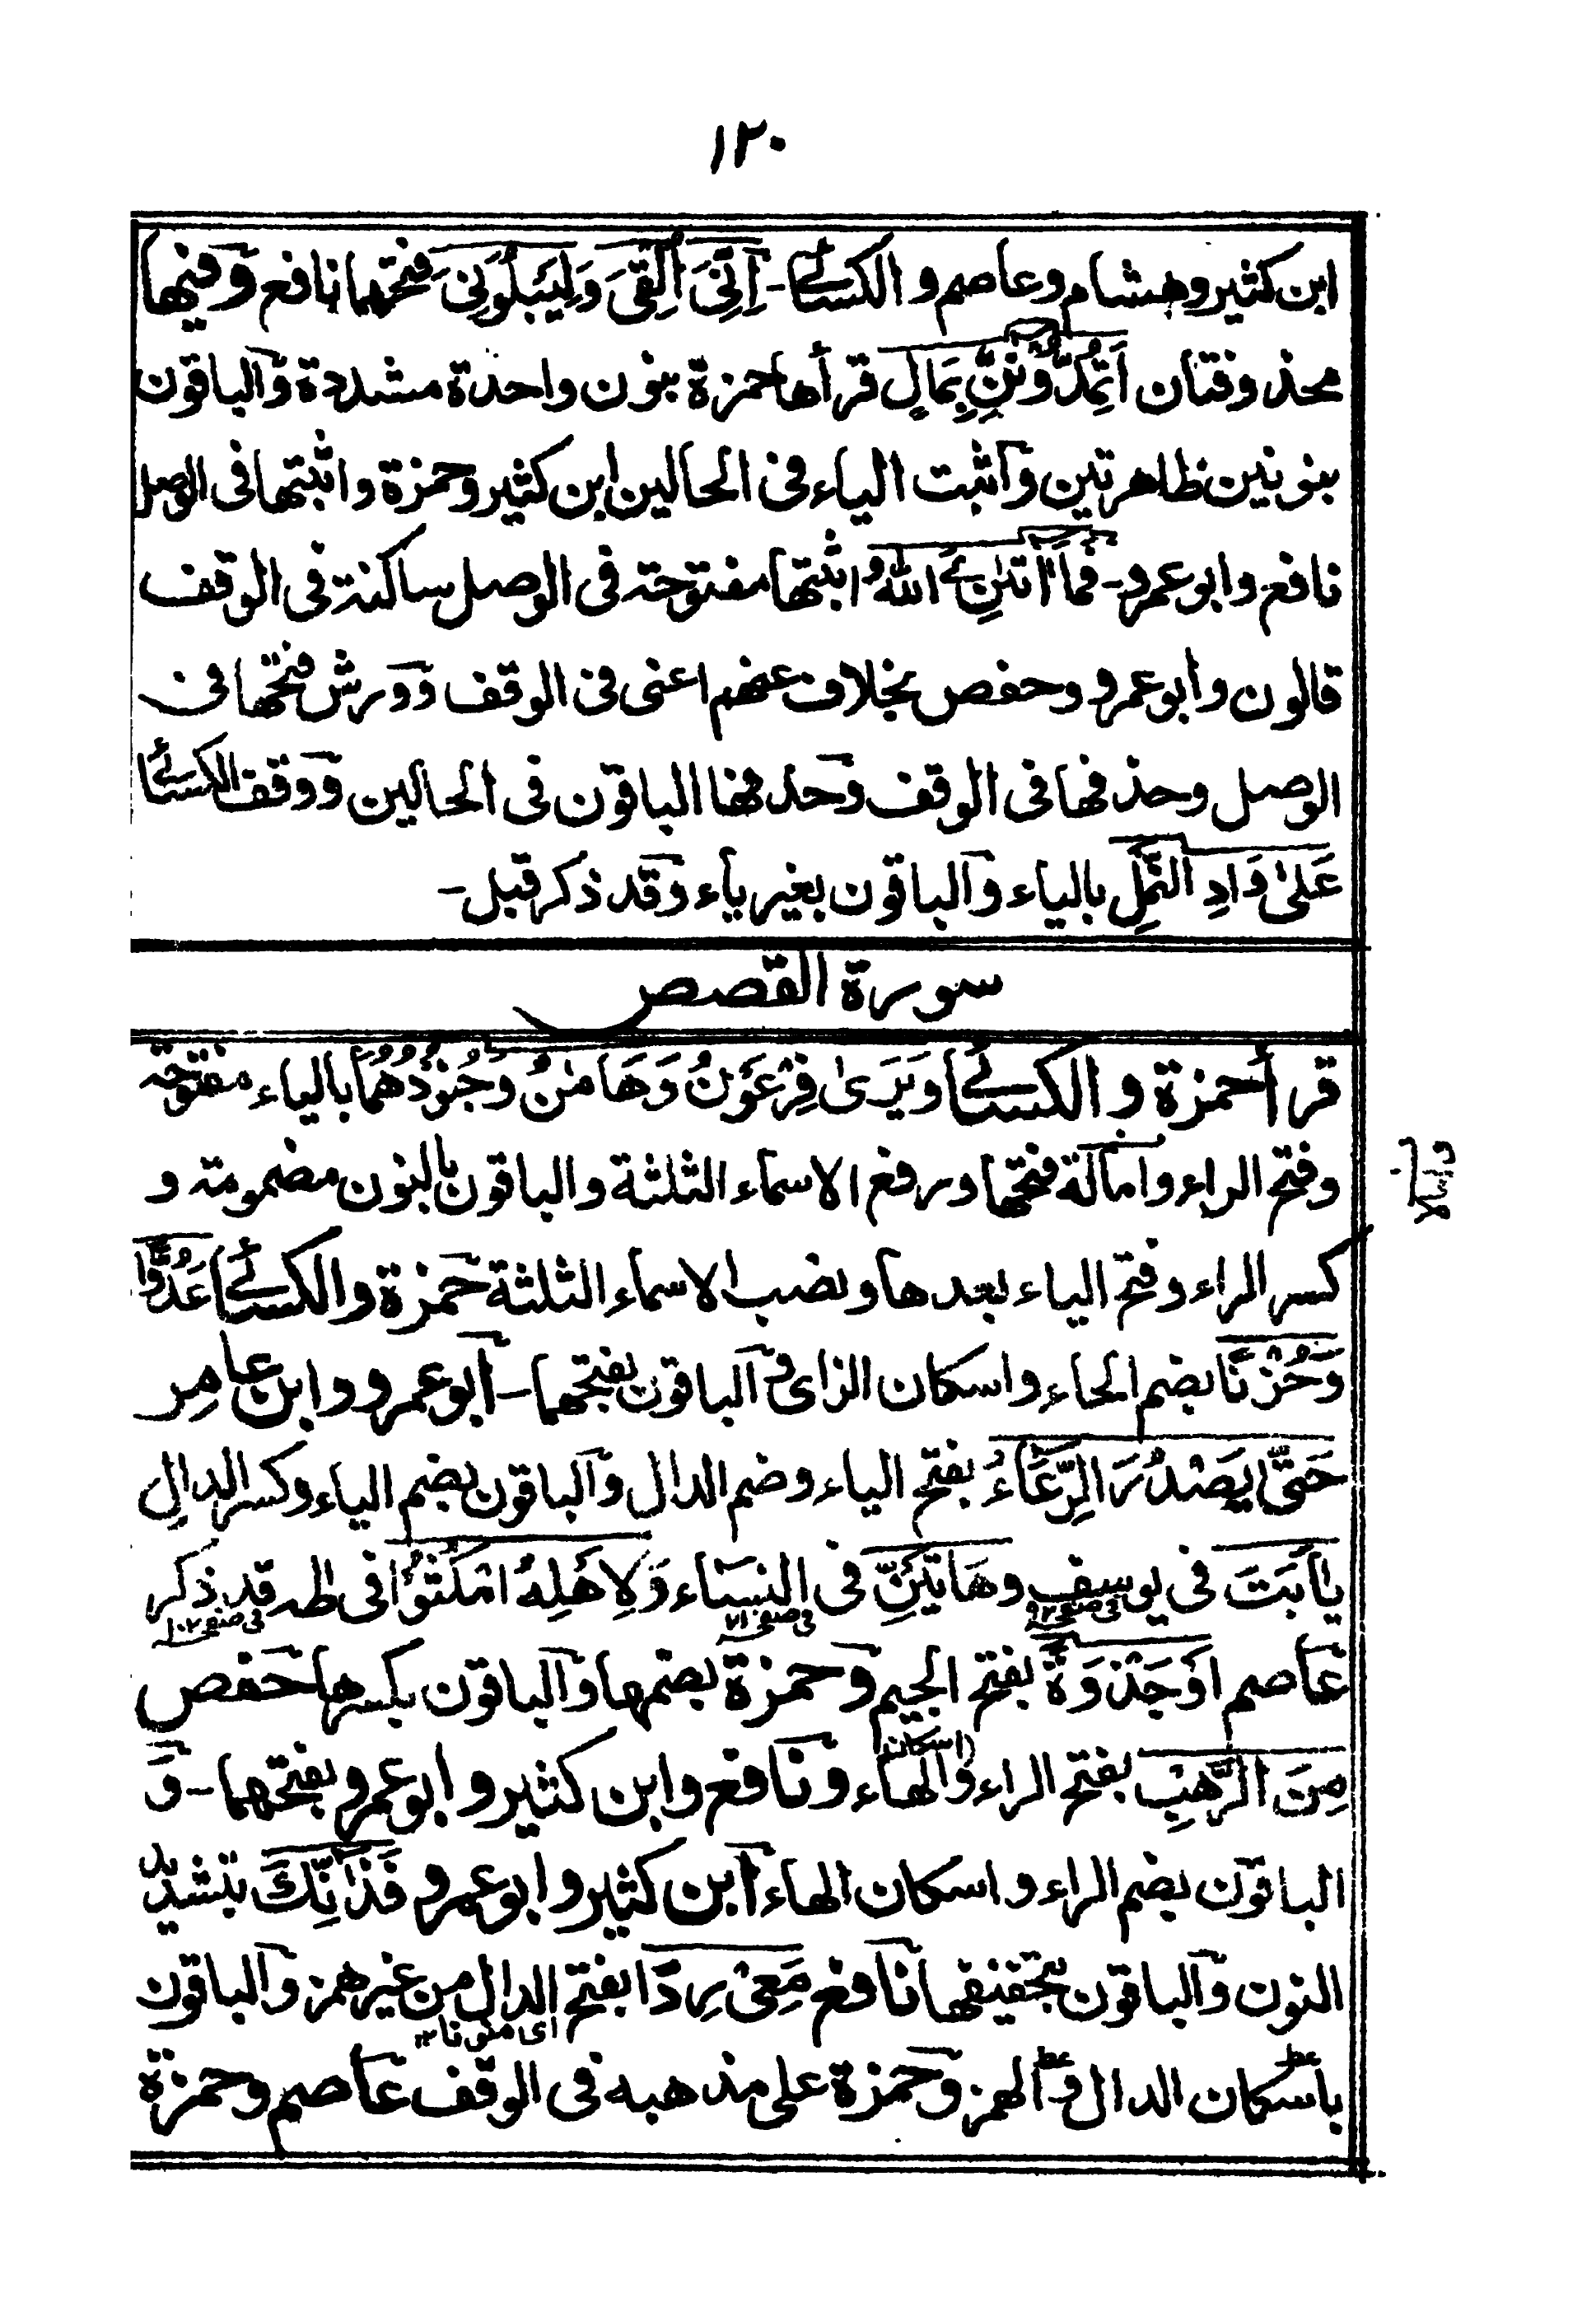 ١٢٠
ابن كثير وهشام وعاصم و الكسائى - اِنِّىَ اُلْقِىَ وَلِيَبْلُوَنِىَ فتحهما نافع وَفيها
محذوفتان اَتُمِدُّوْنَنِّ بِمَالٍ قرأها حمزة بنون واحدة مشددة وَالباقون
بنونين ظاهرتين وَاثبت الياء فى الحالين ابن كثير وحمزة واثبتها فى الوصل
نافع وابوعمرو - فَمَا اٰتٰنِۦَ اللّٰهُ اثبتها مفتوحة فى الوصل ساكنة فى الوقف
قالون وابوعمرو وحفص بخلاف عنهم اعنى فى الوقف وَورش فتحها فى
الوصل وحذفها فى الوقف وَحذفها الباقون فى الحالين وَوقف الكسائى
عَلىٰ وَادِ النَّمْلِ بالياء وَالباقون بغير ياء وَقد ذكر قبل -
سورة القصص
قرأ حمزة والكسائى وَيَرَىٰ فِرْعَوْنُ وَهَامٰنُ وَجُنُوْدُهُمَا بالياء مفتوحة
وفتح الراء وامالة فتحها ورفع الاسماء الثلثة والباقون بالنون مضمومة و
كسر الراء وفتح الياء بعدها ونصب الاسماء الثلثة حمزة والكسائى عَدُوًّا
وَحُزْنًا بضم الحاء واسكان الزاى وَالباقون بفتحهما - ابوعمرو وابن عامر
حَتّٰى يَصْدُرَ الرِّعَاءُ بفتح الياء وضم الدال وَالباقون بضم الياء وكسر الدال
يٰاَبَتَ فى يوسف وهَاتَيْنِّ فى النساء وَلِاَهْلِهُ امْكُثُوْا فى طٰه قد ذكر
فى صفحه ١٠٢
عاصم اَوْجَذْوَةٍ بفتح الجيم وَحمزة بضمها وَالباقون بكسرها حفص
مِنَ الرَّهْبِ بفتح الراء وَالهاء وَنافع وابن كثير وابوعمرو بفتحهما - وَ
(اسكان
الباقون بضم الراء واسكان الهاء ابن كثير وابوعمرو فَذٰانِّكَ بتشديد
النون وَالباقون بتخفيفها نافع مَعِىْ رِدًا بفتح الدال من غير همز وَالباقون
اى منونا ١٢
باسكان الدال وَالهمز وَحمزة على مذهبه فى الوقف عاصم وحمزة